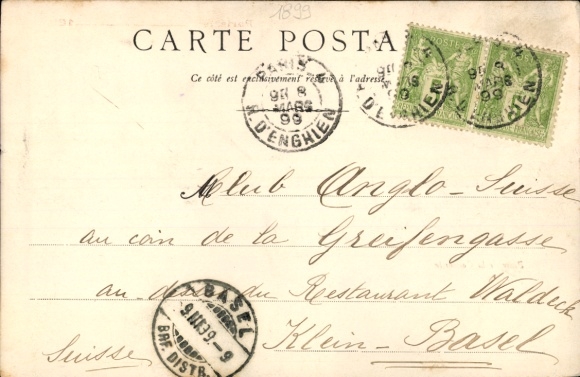 1899
CARTE POSTA
Ce côté est exclusivement réservé à l'adresse
PARIS
9E 8
MARS
99
R. D'ENGHIEN
8
MARS
99
R. D'ENGHIEN
POSTE
Club Anglo-Suisse
au coin de la Greifengasse
au-dessus du Restaurant Waldeck
Klein-Basel
Suisse
BASEL
9 III 99.-9
BRF. DISTR.